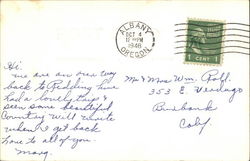 ALBANY
OCT 4
12 PM
1946
OREGON
1 CENT 1
Hi.
we are on our way
back to Redding. I've
had a lovely trip &
seen some beautiful
Country will write
when I get back
Love to all of you
Marg.
Mr & Mrs Wm.
353 E. Verdugo
Burbank
Calif.